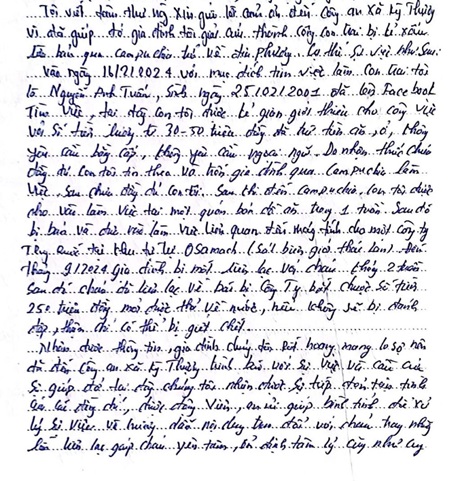 Tôi viết tâm thư này xin gửi lời cảm ơn đến Công an xã Kỳ Thượng
vì đã giúp đỡ gia đình tôi giải cứu thành công con trai bị kẻ xấu
lừa bán qua campuchia trở về địa phương cụ thể sự việc như sau
vào ngày 16/2/2024 với mục đích tìm việc làm con trai tôi
là Nguyễn Anh Tuấn, sinh ngày 25/02/2001 đã lên Facebook
tìm việc, tại đây con tôi được kẻ gian giới thiệu cho công việc
với số tiền lương từ 30-50 triệu đồng đã hứa ăn, ở, không
yêu cầu bằng cấp, không yêu cầu ngoại ngữ. Do nhận thức chưa
đầy đủ con tôi tin theo và trốn gia đình qua campuchia làm
việc. Sau khi đến campuchia, con tôi được
cho vào làm việc tại một quán bán đồ ăn trong 1 tuần. Sau đó
bị bán và đưa vào làm việc liên quan đến mạng tính cho một công ty
Trung Quốc tại khu tự trị OSamach (sát biên giới thái lan). Đến
tháng 9/2024 gia đình bị mất liên lạc với cháu khoảng 2 tuần
sau đó cháu đã liên lạc về báo bị công ty bắt chuộc số tiền
250 triệu đồng mới được thả về nước, nếu không sẽ bị đánh
đập, thậm chí có thể bị giết chết
Nhận được thông tin, gia đình chúng tôi rất hoang mang lo sợ nên
đã đến công an xã Kỳ Thượng trình báo với sự việc và cầu cứu
sự giúp đỡ tại đây chúng tôi nhận được sự tiếp đón tận tình
của các đồng chí, được động viên, an ủi giúp bình tĩnh để xử
lý sự việc và hướng dẫn nội dung trao đổi với cháu trong những
lần liên lạc giúp cháu yên tâm, ổn định tâm lý cũng như